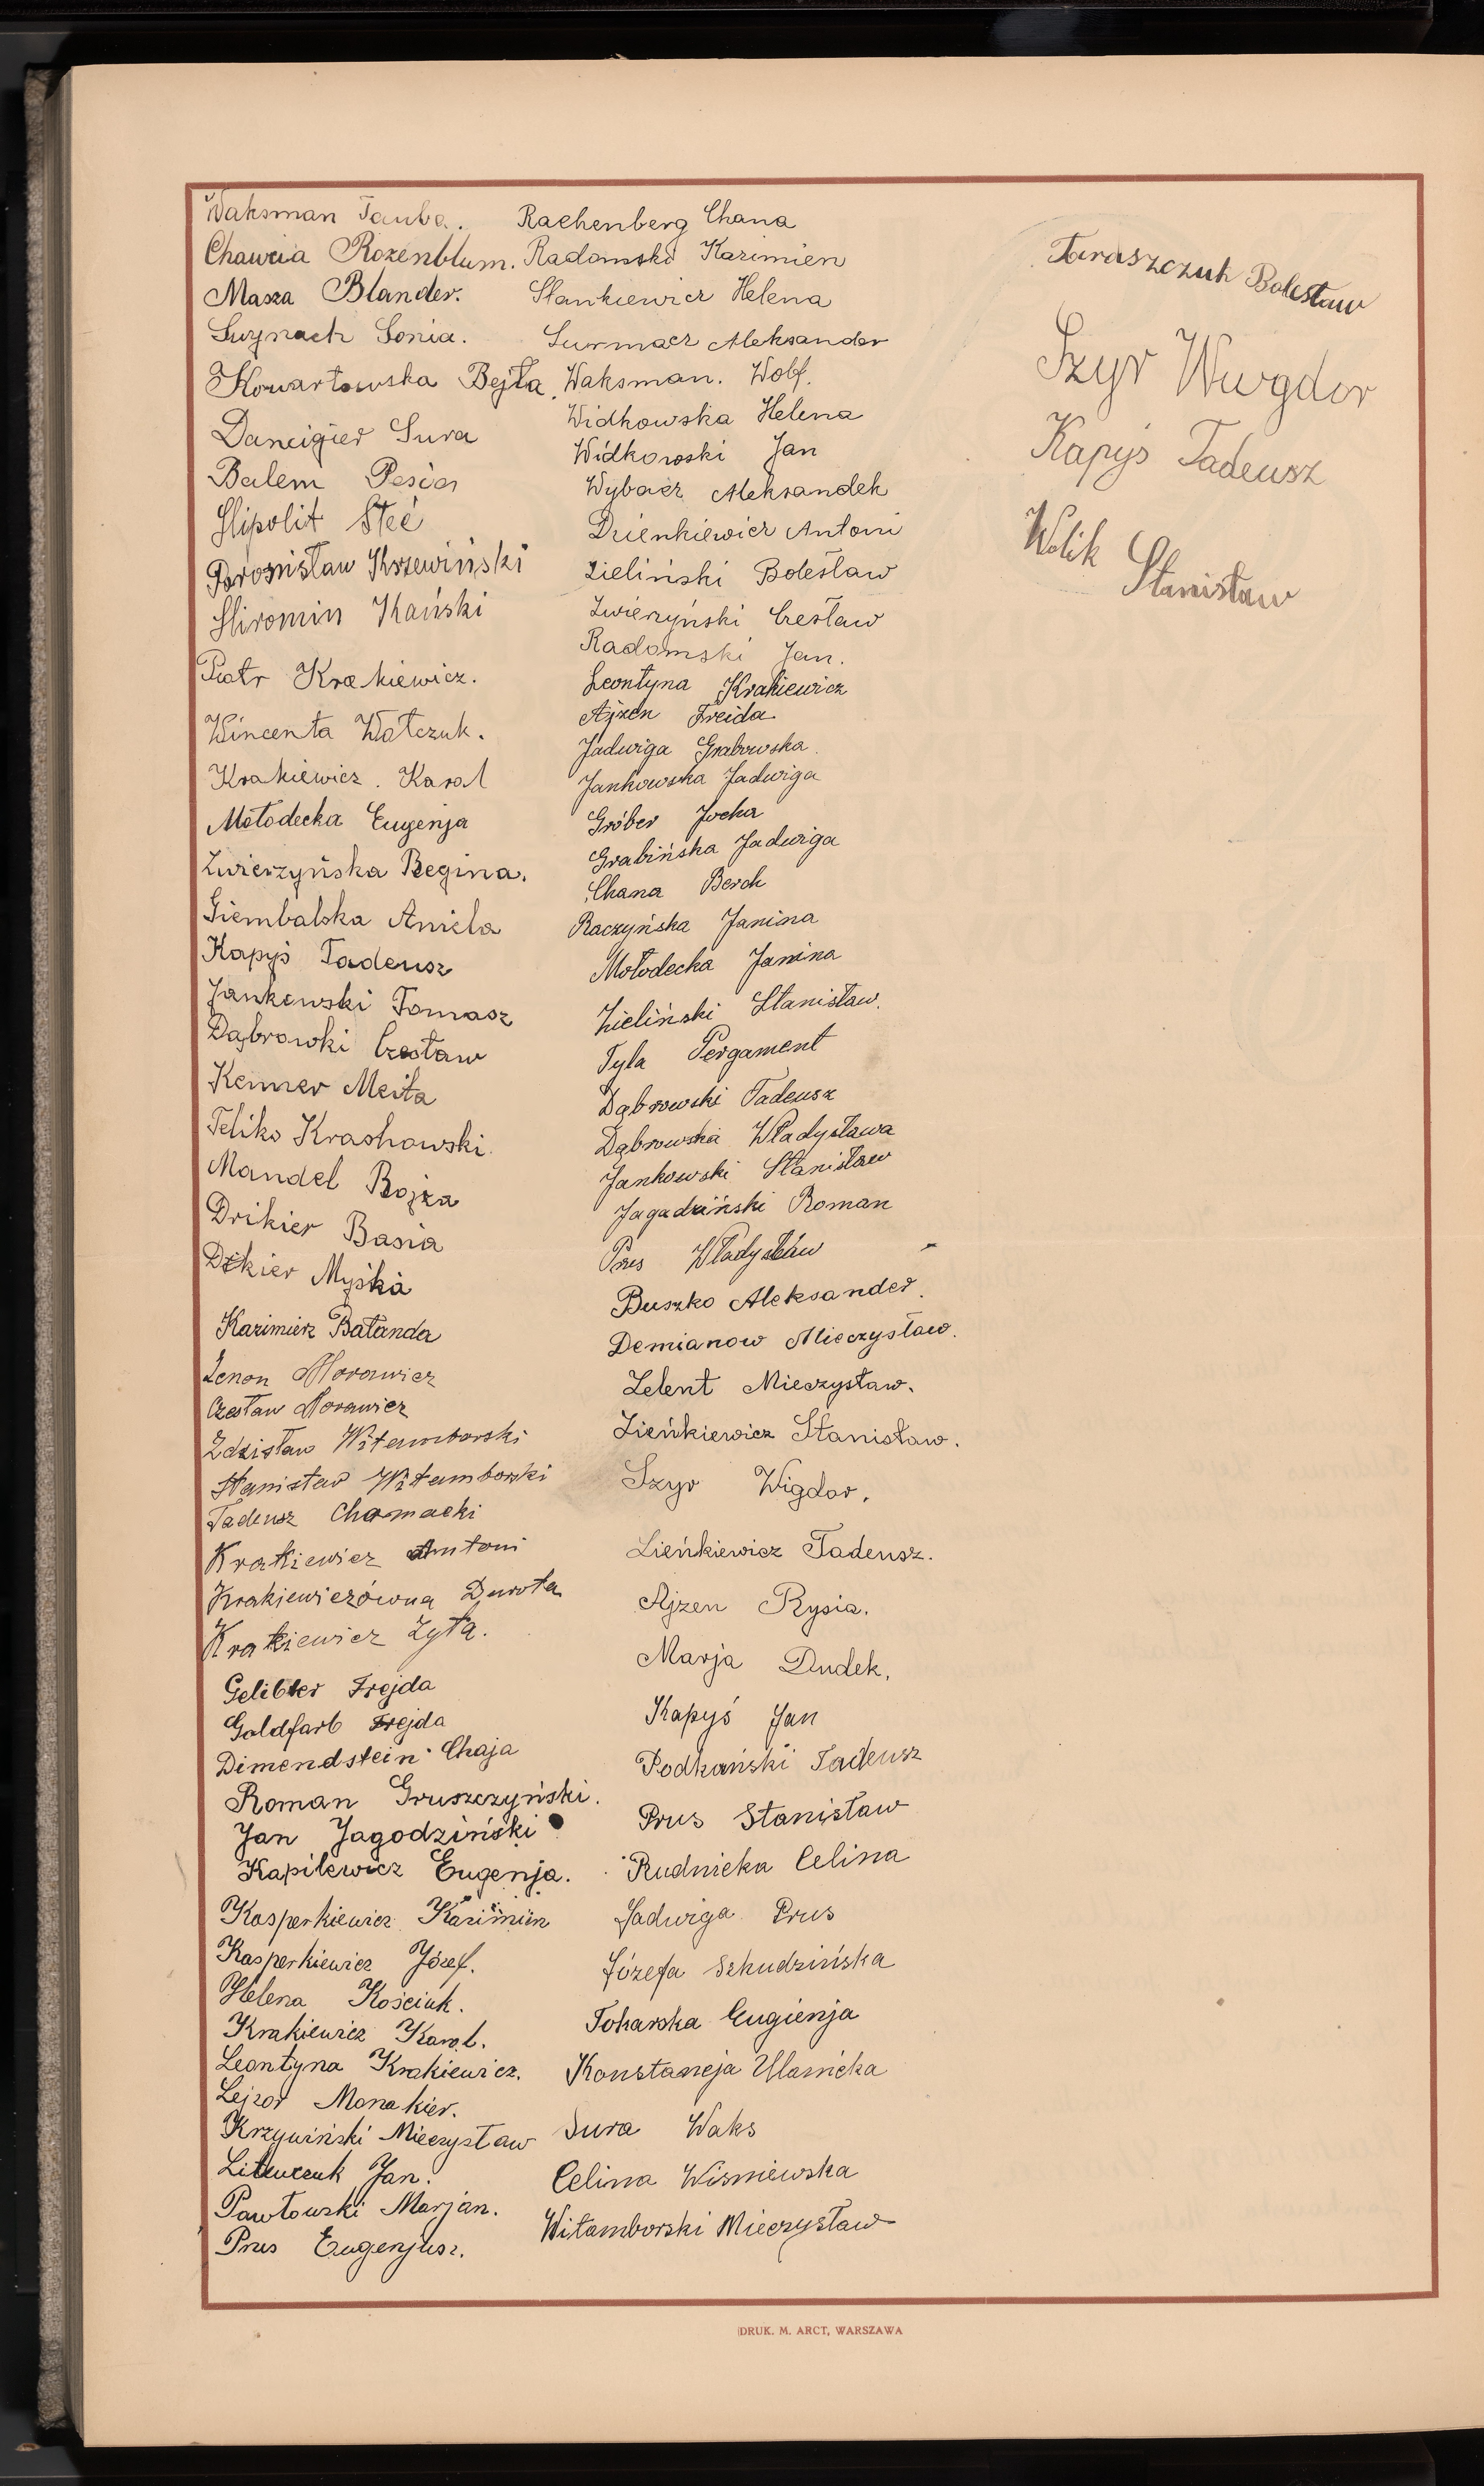 Waksman Tauba.
Chawcia Rozenblum.
Masza Blander.
Sonia.
Kowartowska Bejta.
Dancigier Sura
Balem Pesia
Hipolit Steć
Bronisław Krzewiński
Hiromin Kański
Piotr Krakiewicz.
Wincenta Watczuk.
Krakiewicz. Karol
Mołodecka Eugenja
Zwierzyńska Regina.
Giembalska Aniela
Kapyś Tadeusz
Jankowski Tomasz
Dąbrowki Czesław
Kenner Meita
Feliks Krashowski.
Mandel Rojza
Drikier Basia
Myśka
Kazimierz Batanda
Zenon Morawicz
Czesław Morawicz
Zdzisław Witamborski
Stanisław Witamborski
Tadeusz Chomacki
Krakiewicz Antoni
Krakiewiczówna Durota
Krakiewicz Zyta.
Gelibter Frejda
Goldfarb Frejda
Dimendstein Chaja
Roman Gruszczyński.
Jan Jagodziński
Kapilewicz Eugenja.
Kasperkiewicz Kazimierz
Kasperkiewicz Józef.
Helena Kościuk.
Krakiewicz Karol.
Leontyna Krakiewicz.
Lejzor Monakier.
Krzywiński Mieczysław
Litwczuk Jan.
Pawłowski Marjan.
Prus Eugenjusz.
Rachenberg Chana
Radomski Kazimierz
Stankiewicz Helena
Surmacz Aleksander
Waksman. Wolf.
Widkowska Helena
Widkowski Jan
Wybacz Aleksandek
Dzienkiewicz Antoni
Zieliński Bolesław
Zwierzyński Czesław
Radomski Jan.
Leontyna Krakiewicz
Ajzen Freida
Jadwiga Grabowska.
Jankowska Jadwiga
Gróber Jocha
Grabińska Jadwiga
Chana Berch
Raczyńska Janina
Mołodecka Janina
Zieliński Stanisław.
Tyla Pergament
Dąbrowski Tadeusz
Dąbrowska Władysława
Jankowski Stanisław
Jagadziński Roman
Prus Władysław
Buszko Aleksander.
Demianow Mieczysław.
Zelent Mieczysław.
Zieńkiewicz Stanisław.
Szyr Wigdor.
Zieńkiewicz Tadeusz.
Ajzen Rysia.
Marja Dudek.
Kapyś Jan
Podkański Tadeusz
Prus Stanisław
Rudnicka Celina
Jadwiga Prus
Józefa Szkudzińska
Tokarska Eugienja
Konstancja Ulanicka
Sura Waks
Celina Wiśniewska
Witamborski Mieczysław
Taraszczuk Bolesław
Szyr Wurgdor
Kapyś Tadeusz
Wolik
Stanisław
DRUK. M. ARCT, WARSZAWA